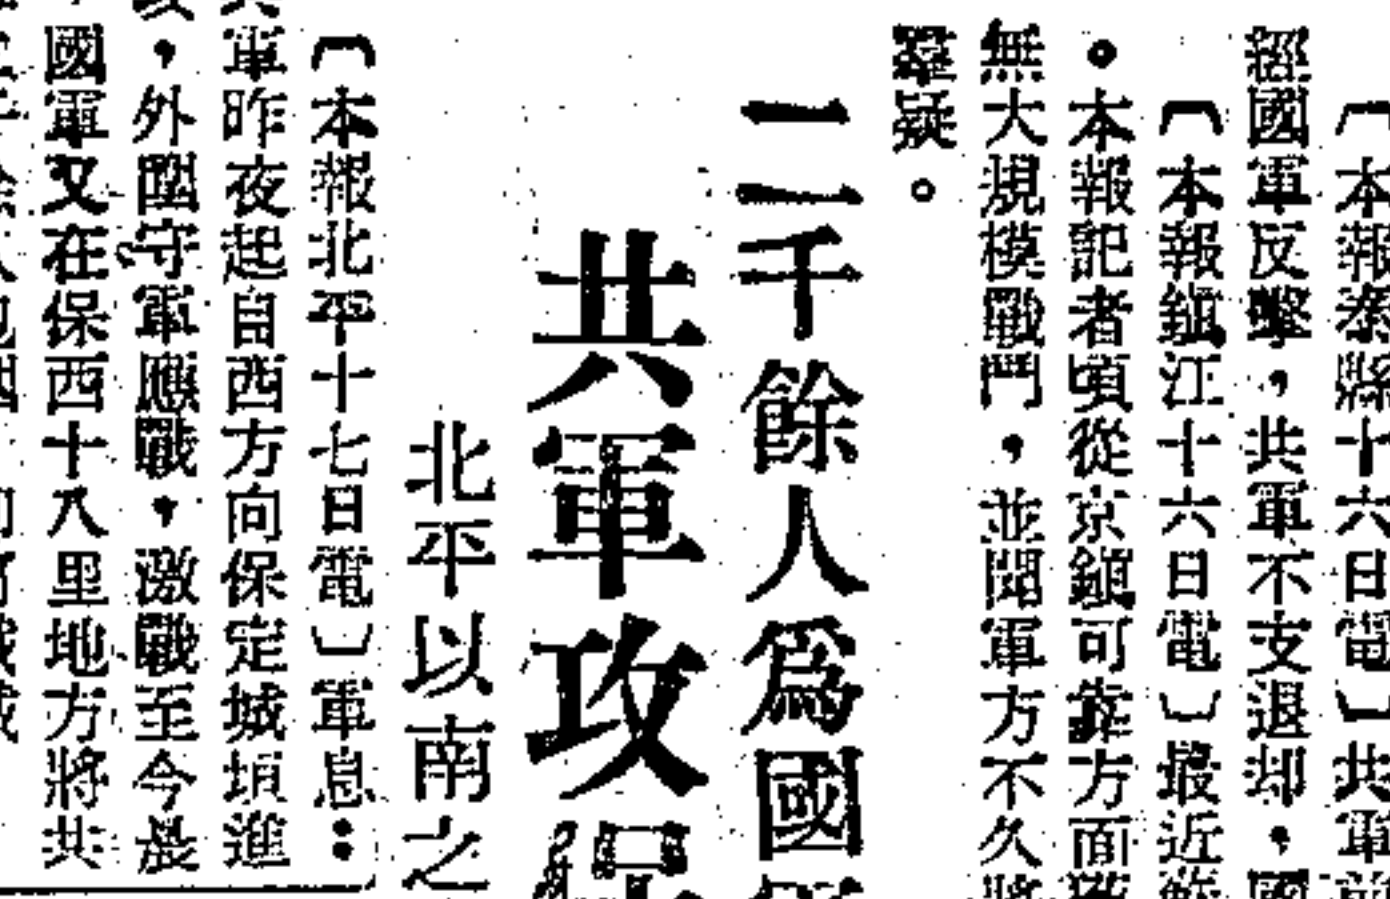 〔本報泰縣十六日電〕共軍
經國軍反擊，共軍不支退却，國
〔本報鎮江十六日電〕最近
。本報記者頃從京鎮可靠方面
無大規模戰鬥，並聞軍方不久將
羣疑。
二千餘人爲國
共軍攻保
北平以南之
〔本報北平十七日電〕軍息：
軍昨夜起自西方向保定城垣進
，外圍守軍應戰，激戰至今晨
國軍又在保西十八里地方將共